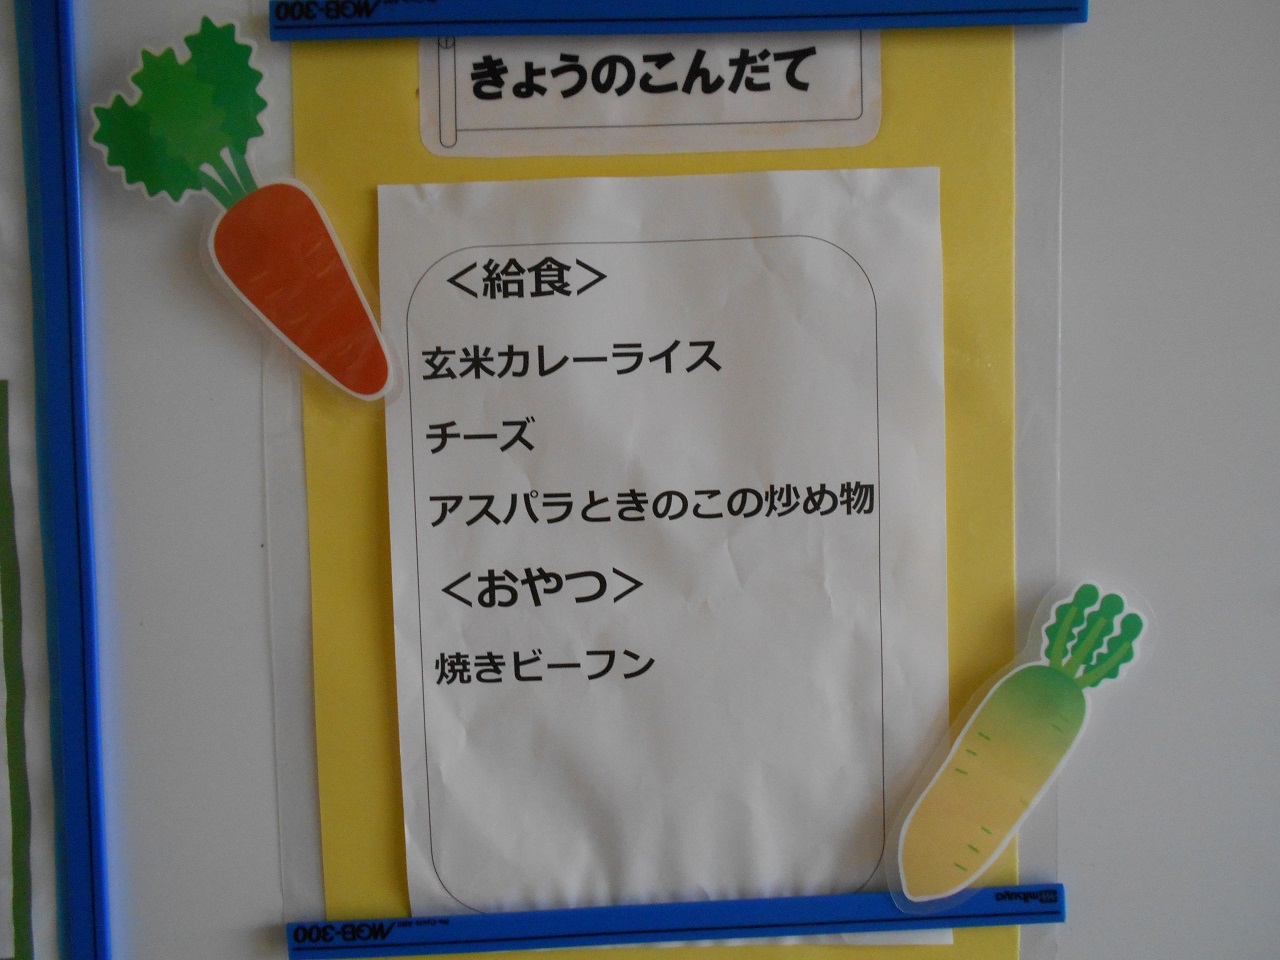 MGB-300
きょうのこんだて
＜給食＞
玄米カレーライス
チーズ
アスパラときのこの炒め物
＜おやつ＞
焼きビーフン
MGB-300